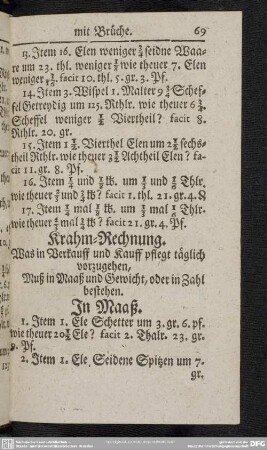 mit Brüche. 69
13. Item 16. Elen weniger ¾ seidne Waa-
re um 23. thl. weniger ⅓ wie theuer 7. Elen
weniger facit 10. thl. 5. gr. 3. Pf.
14. Item 3. Wispel 1. Malter 9 ¾ Schef-
fel Getreydig um 125. Rthlr. wie theuer 6 ¼.
Scheffel weniger ½ Viertheil? facit 8.
Rthlr. 20. gr.
15. Item 1 Vierthel Elen um sechs-
theil Rthlr. wie theuer 3 ½ Achtheil Elen? fa-
cit 11. gr. 8. Pf.
16. Item und ½ ℔. um und ⅙ Thlr.
wie theuer und ¼ ℔? facit 1. thl. 21. gr. 4. ₰
17. Item mal ½ ℔. um mal ⅙ Thlr.
wie theuer mal ¼ ℔? facit 21. gr. 4. Pf.
Krahm-Rechnung.
Was in Verkauff und Kauff pflegt täglich
vorzugehen,
Muß in Maaß und Gewicht, oder in Zahl
bestehen.
In Maaß.
1. Item 1. Ele Schetter um 3. gr. 6. pf.
wie theuer 20 Ele? facit 2. Thalr. 23. gr.
Pf.
2. Item 1. Ele Seidene Spitzen um 7.
gr.